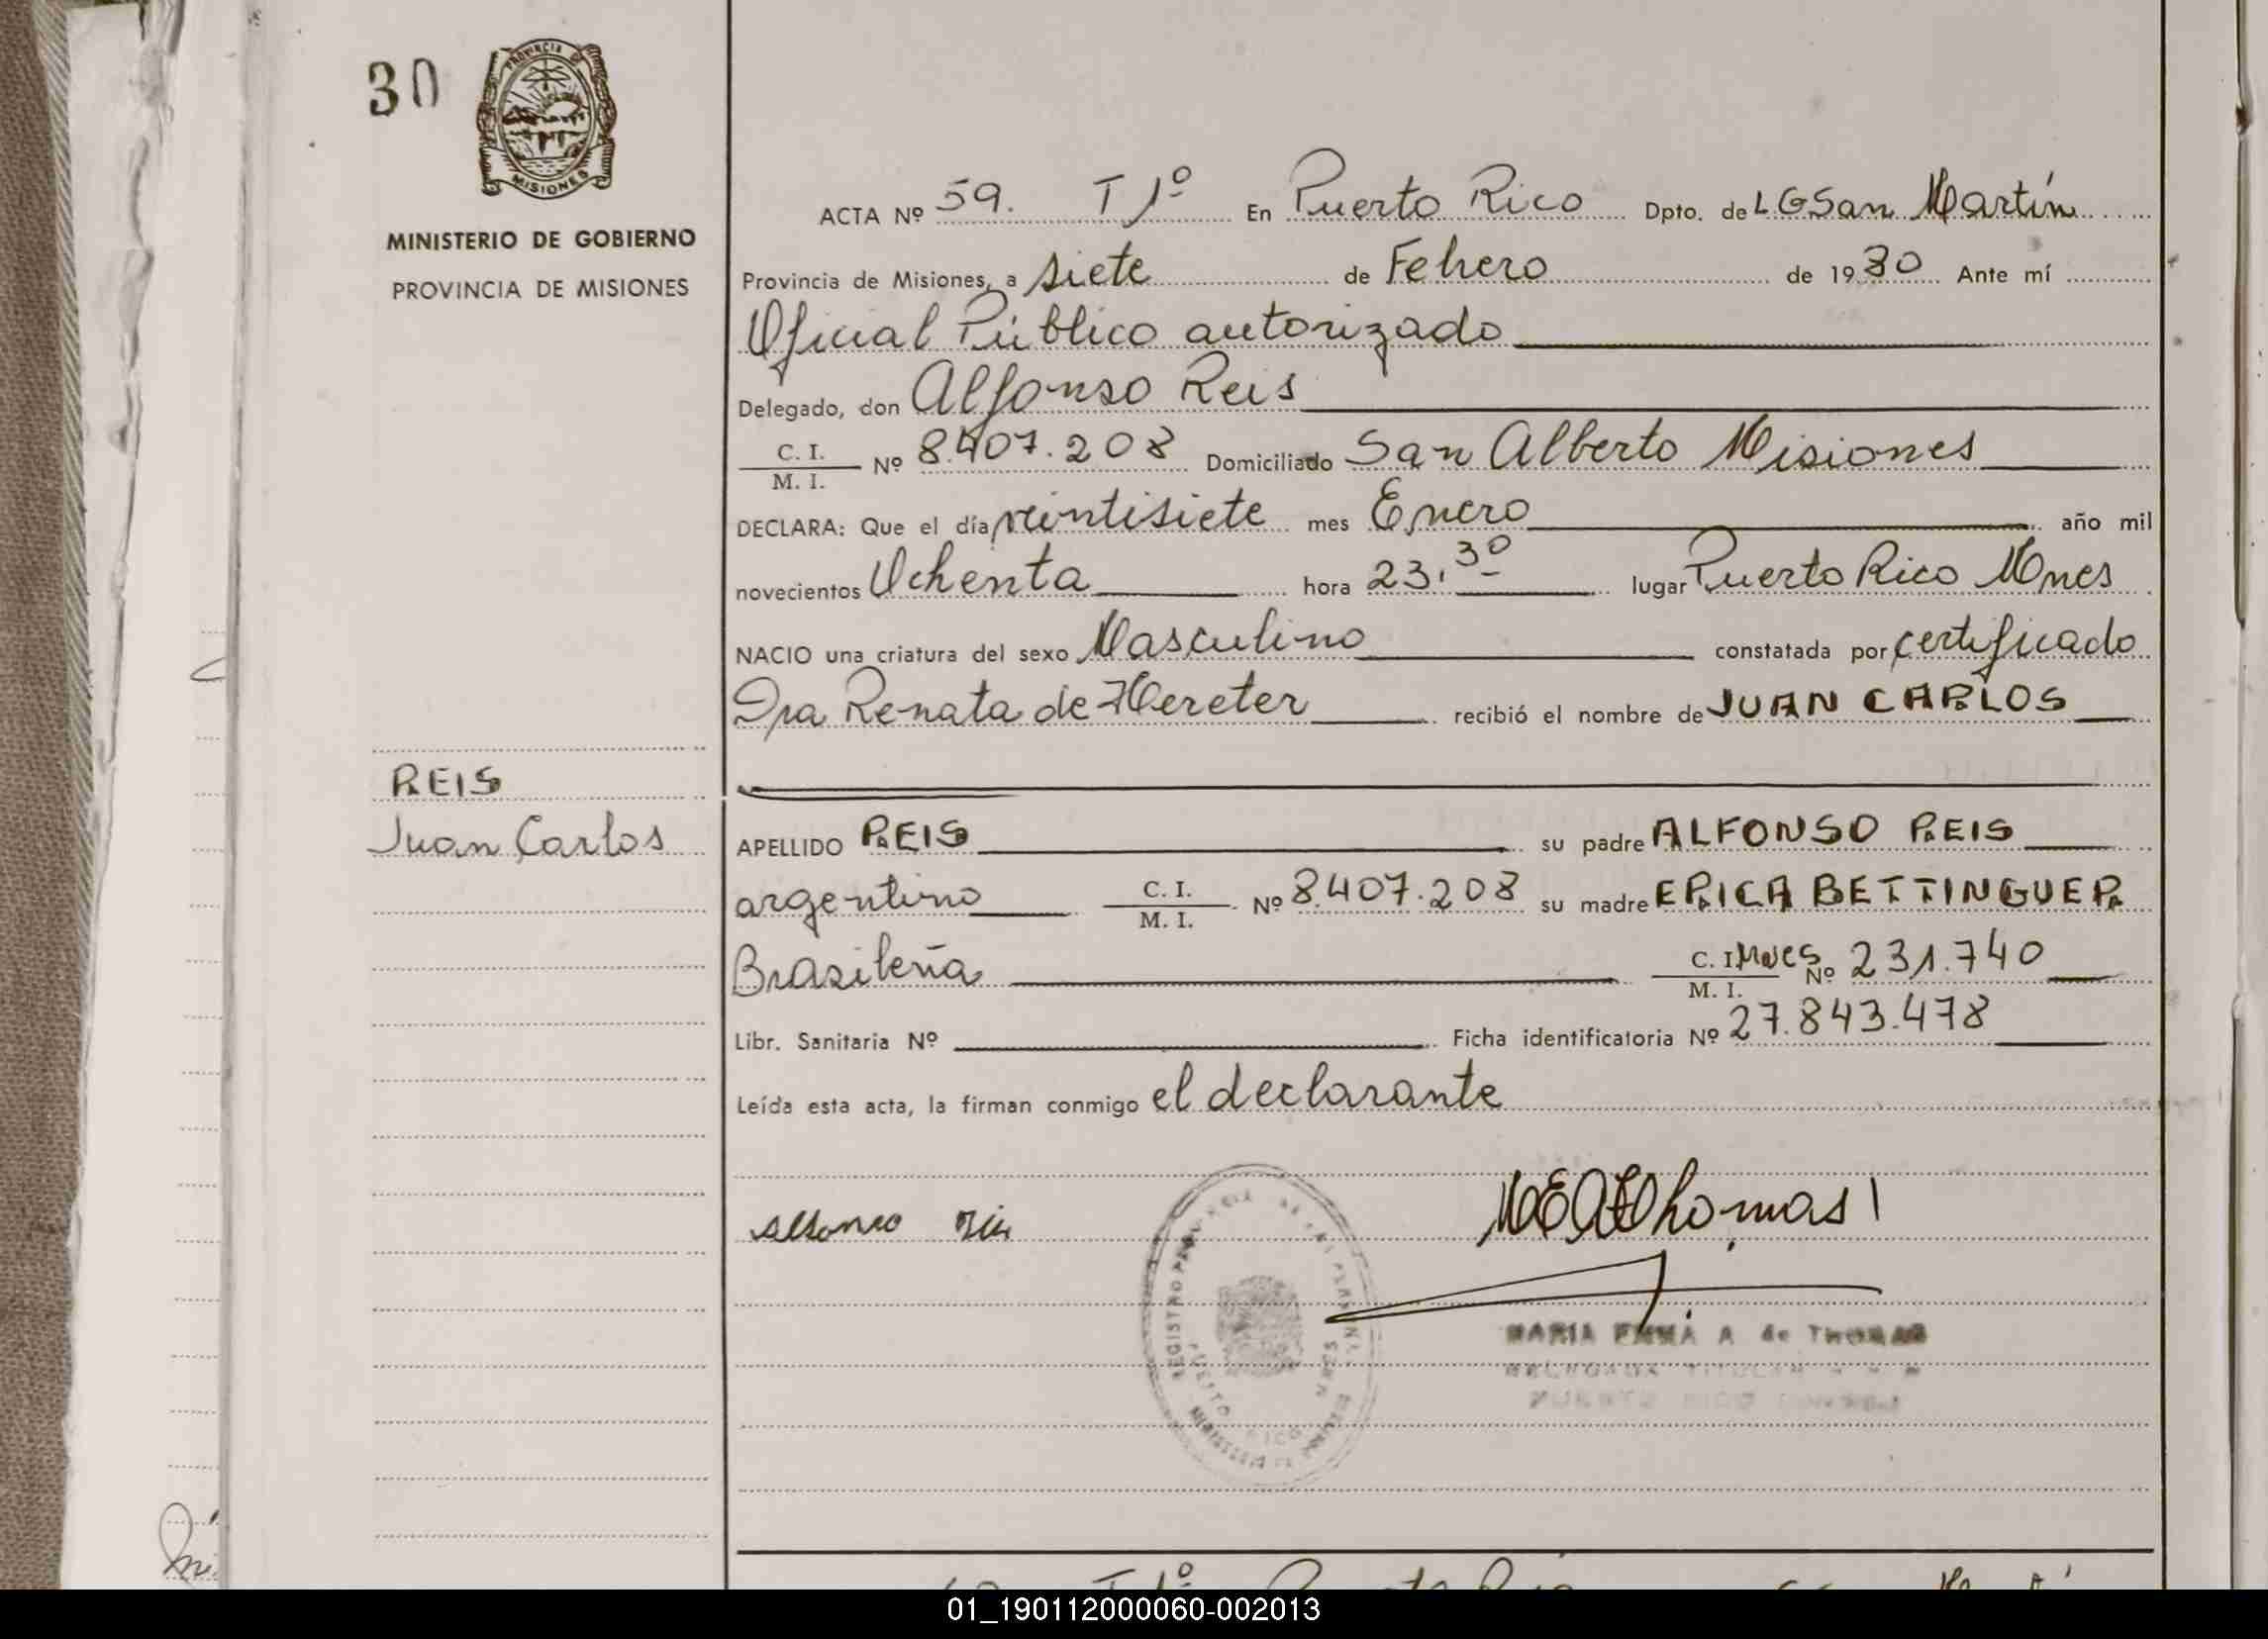 30
PROVINCIA DE
MISIONES
MINISTERIO DE GOBIERNO
PROVINCIA DE MISIONES
REIS
Juan Carlos
ACTA Nº 59. T 1º En Puerto Rico Dpto. de L G San Martín
Provincia de Misiones, a siete de Febrero de 1980 Ante mí
Oficial Público autorizado
Delegado, don Alfonso Reis
C. I. / M. I. Nº 8.407.208 Domiciliado San Alberto Misiones
DECLARA: Que el día veintisiete mes Enero año mil
novecientos Ochenta hora 23,30 lugar Puerto Rico Mnes
NACIO una criatura del sexo Masculino constatada por certificado
Dra Renata de Hereter recibió el nombre de JUAN CARLOS
APELLIDO REIS su padre ALFONSO REIS
argentino C. I. / M. I. Nº 8.407.208 su madre ERICA BETTINGUER
Brasileña C. I. / M. I. Mnes Nº 231.740
Libr. Sanitaria Nº Ficha identificatoria Nº 27.843.478
Leída esta acta, la firman conmigo el declarante
Alfonso Reis
MEA de Thomas
MARIA EMMA A de THOMAS
DELEGADA TITULAR
PUERTO RICO
REGISTRO
PUERTO RICO
MINISTERIO DE
01_190112000060-002013